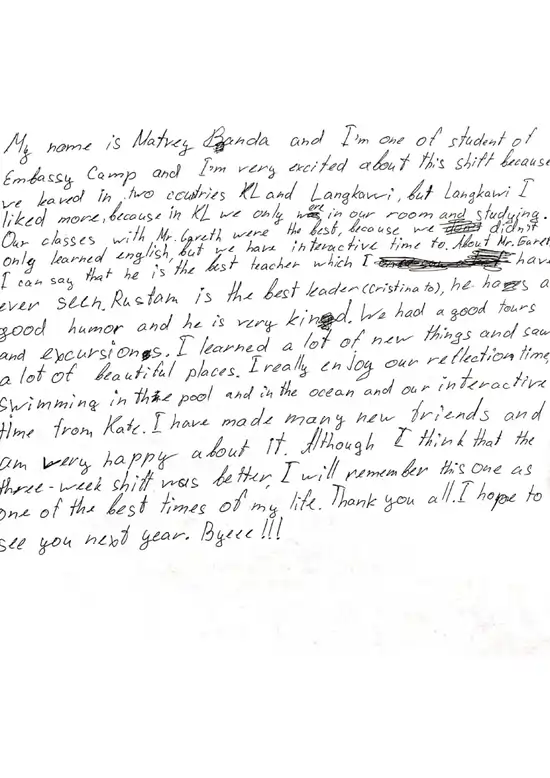 My name is Matvey Banda and I'm one of student of
Embassy Camp and I'm very excited about this shift because
we leaved in two countries KL and Langkawi, but Langkawi I
liked more, because in KL we only were in our room and studying.
Our classes with Mr. Gareth were the best, because we didn't
only learned english, but we have interactive time to. About Mr. Gareth
I can say that he is the best teacher which I have
ever seen. Rustam is the best leader (cristina to), he has a
good humor and he is very kind. We had a good tours
and excursions. I learned a lot of new things and saw
a lot of beautiful places. I really enjoy our reflection time,
swimming in the pool and in the ocean and our interactive
time from Kate. I have made many new friends and
am very happy about it. Although I think that the
three-week shift was better, I will remember this one as
one of the best times of my life. Thank you all. I hope to
see you next year. Byeee!!!